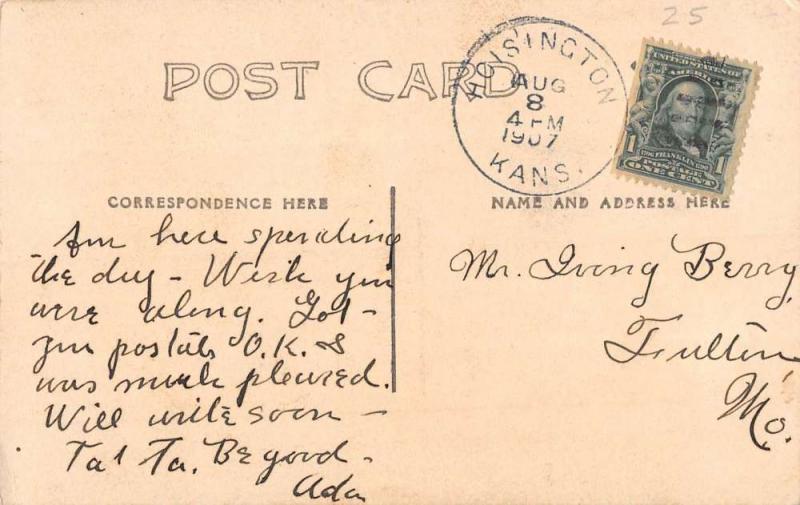 25
POST CARD
HOISINGTON
AUG
8
4 PM
1907
KANS.
UNITED STATES OF
AMERICA
1 1
1706 FRANKLIN 1790
POSTAGE
ONE CENT
CORRESPONDENCE HERE
NAME AND ADDRESS HERE
Am here spending
the day - Wish you
were along. Got -
your postals O.K. &
was much pleased.
Will write soon -
Ta! Ta. Be good -
Ada
Mr. Irving Berry,
Fulton
Mo.